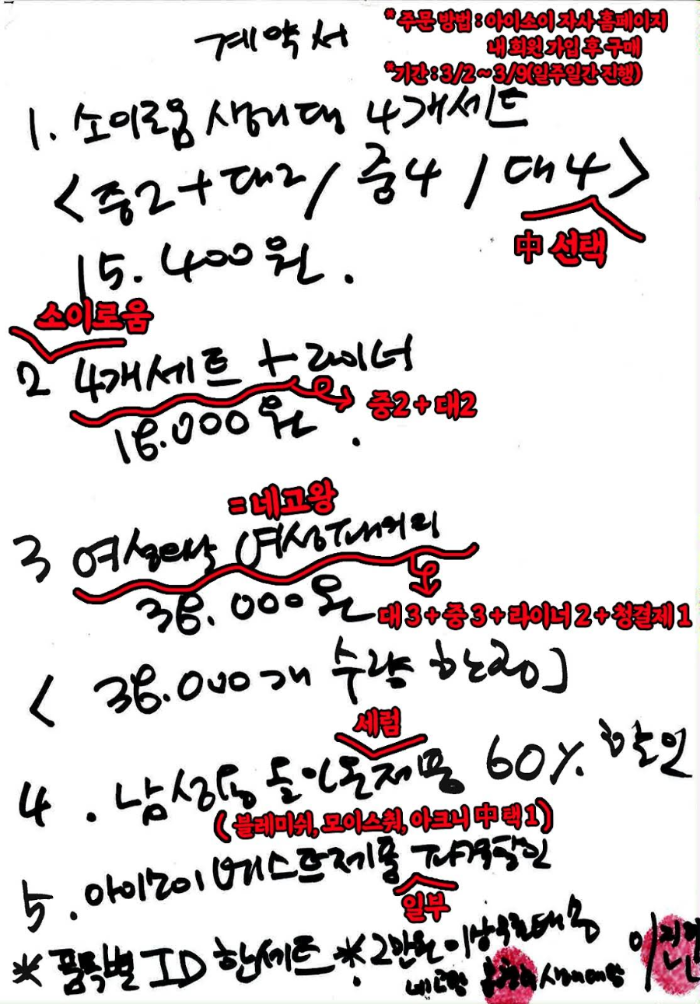 계약서
* 주문 방법 : 아이소이 자사 홈페이지
내 회원 가입 후 구매
*기간 : 3/2 ~ 3/9(일주일간 진행)
1. 소이로움 생리대 4개세트
<중2+대2 / 중4 / 대4>
中 선택
15.400원.
소이로움
2 4개세트 + 라이너
중2 + 대2
18.000원.
= 네고왕
3 여성의날
38.000원
대 3 + 중 3 + 라이너 2 + 청결제 1
< 38.000개 수량 한정]
세럼
4. 남성용 올인원제품 60% 할인
( 블레미쉬, 모이스춰, 아크니 中 택 1 )
5. 아이소이 베스트제품 파격할인
일부
* 품목별 ID 한세트 * 2만원 이상무료배송
네고왕 생리대왕
이진민